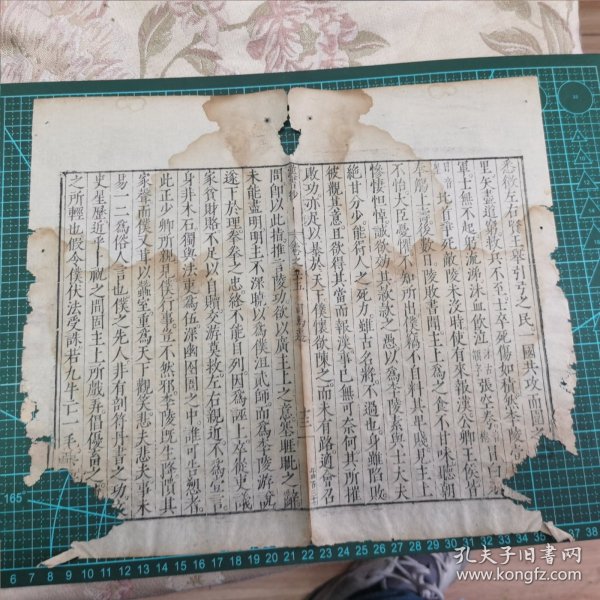 悉徵左右賢王舉引弓之民一國共攻而圍
里矢盡道窮救兵不至士卒死傷如積然李陵
軍士無不起躬流涕沫血飲泣張空弮冒白
北首爭死敵陵未沒時使有來報漢公卿王侯皆
奉觴上壽後數日陵敗書聞主上爲之食不甘味聽朝
不怡大臣憂懼不知所出僕竊不自料其卑賤見主上
慘悽怛悼誠欲効其欵欵之愚以爲李陵素與士大夫
絕甘分少能得人之死力雖古名將不過也身雖陷敗
彼觀其意且欲得其當而報漢事已無可奈何其所摧
敗功亦足以暴於天下僕懷欲陳之而未有路適會召
問卽以此指推言陵功欲以廣主上之意塞睚眦之辭
未能盡明明主不深曉以爲僕沮貳師而爲李陵游說
遂下於理拳拳之忠終不能自列因爲誣上卒從吏議
家貧財賂不足以自贖交游莫救左右親近不爲壹言
身非木石獨與法吏爲伍深幽囹圄之中誰可告愬者
此正少卿所親見僕行事豈不然邪李陵旣生降隤其
家聲而僕又茸以蠶室重爲天下觀笑悲夫悲夫事未
易一二爲俗人言也僕之先人非有剖符丹書之功文
史星歷近乎卜祝之間固主上所戲弄倡優畜之
之所輕也假令僕伏法受誅若九牛亡一毛
165
6 7 8 9 10 11 12 13 14 15 16 17 18 19 20 21 22 23 24 25 26 27 28 29 30 31 32 33 34 35 36 37 38
孔夫子旧书网
www.kongfz.com